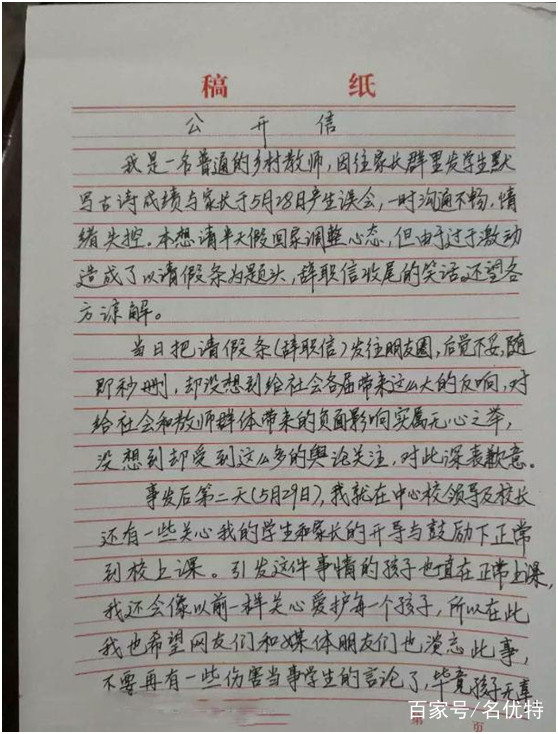 稿 纸
公开信
我是一名普通的乡村教师,因往家长群里发学生默
写古诗成绩与家长于5月28日产生误会,一时沟通不畅,情
绪失控。本想请半天假回家调整心态,但由于过于激动
造成了以请假条为题头,辞职信收尾的笑话。还望各
方谅解。
当日把请假条(辞职信)发往朋友圈,后觉不妥,随
即秒删,却没想到给社会各届带来这么大的反响,对
给社会和教师群体带来的负面影响实属无心之举,
没想到却受到这么多的舆论关注,对此深表歉意。
事发后第二天(5月29日),我就在中心校领导及校长
还有一些关心我的学生和家长的开导与鼓励下正常
到校上课。引发这件事情的孩子也一直在正常上课,
我还会像以前一样关心爱护每一个孩子,所以在此
我也希望网友们和媒体朋友们也淡忘此事,
不要再有一些伤害当事学生的言论了,毕竟孩子无辜
第 页
百家号/名优特